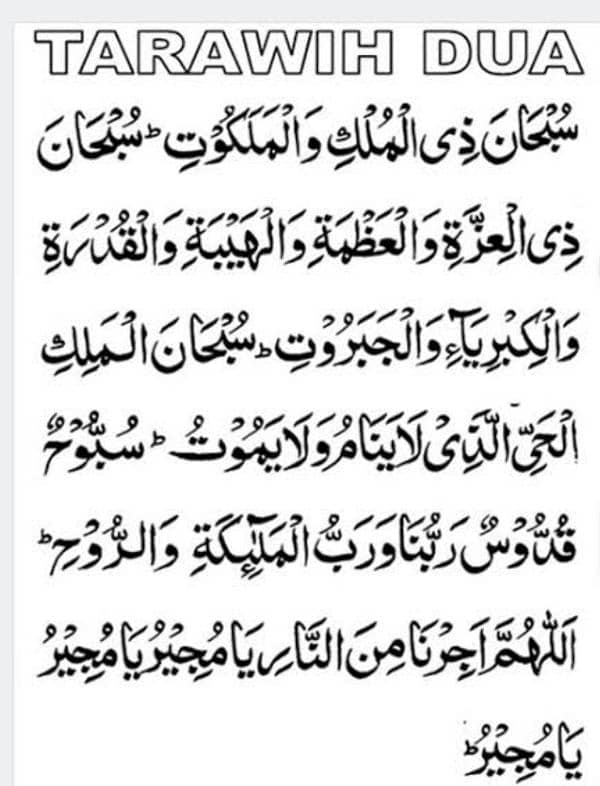 TARAWIH DUA
سُبْحَانَ ذِی الْمُلْكِ وَالْمَلَكُوْتِ ؕ سُبْحَانَ
ذِی الْعِزَّةِ وَالْعَظْمَةِ وَالْهَيْبَةِ وَالْقُدْرَةِ
وَالْكِبْرِيَآءِ وَالْجَبَرُوْتِ ؕ سُبْحَانَ الْمَلِكِ
الْحَیِّ الَّذِیْ لَا يَنَامُ وَلَا يَمُوْتُ ؕ سُبُّوْحٌ
قُدُّوْسٌ رَبُّنَا وَرَبُّ الْمَلٰٓئِكَةِ وَالرُّوْحِ ؕ
اَللّٰهُمَّ اَجِرْنَا مِنَ النَّارِ يَا مُجِيْرُ يَا مُجِيْرُ
يَا مُجِيْرُ ؕ